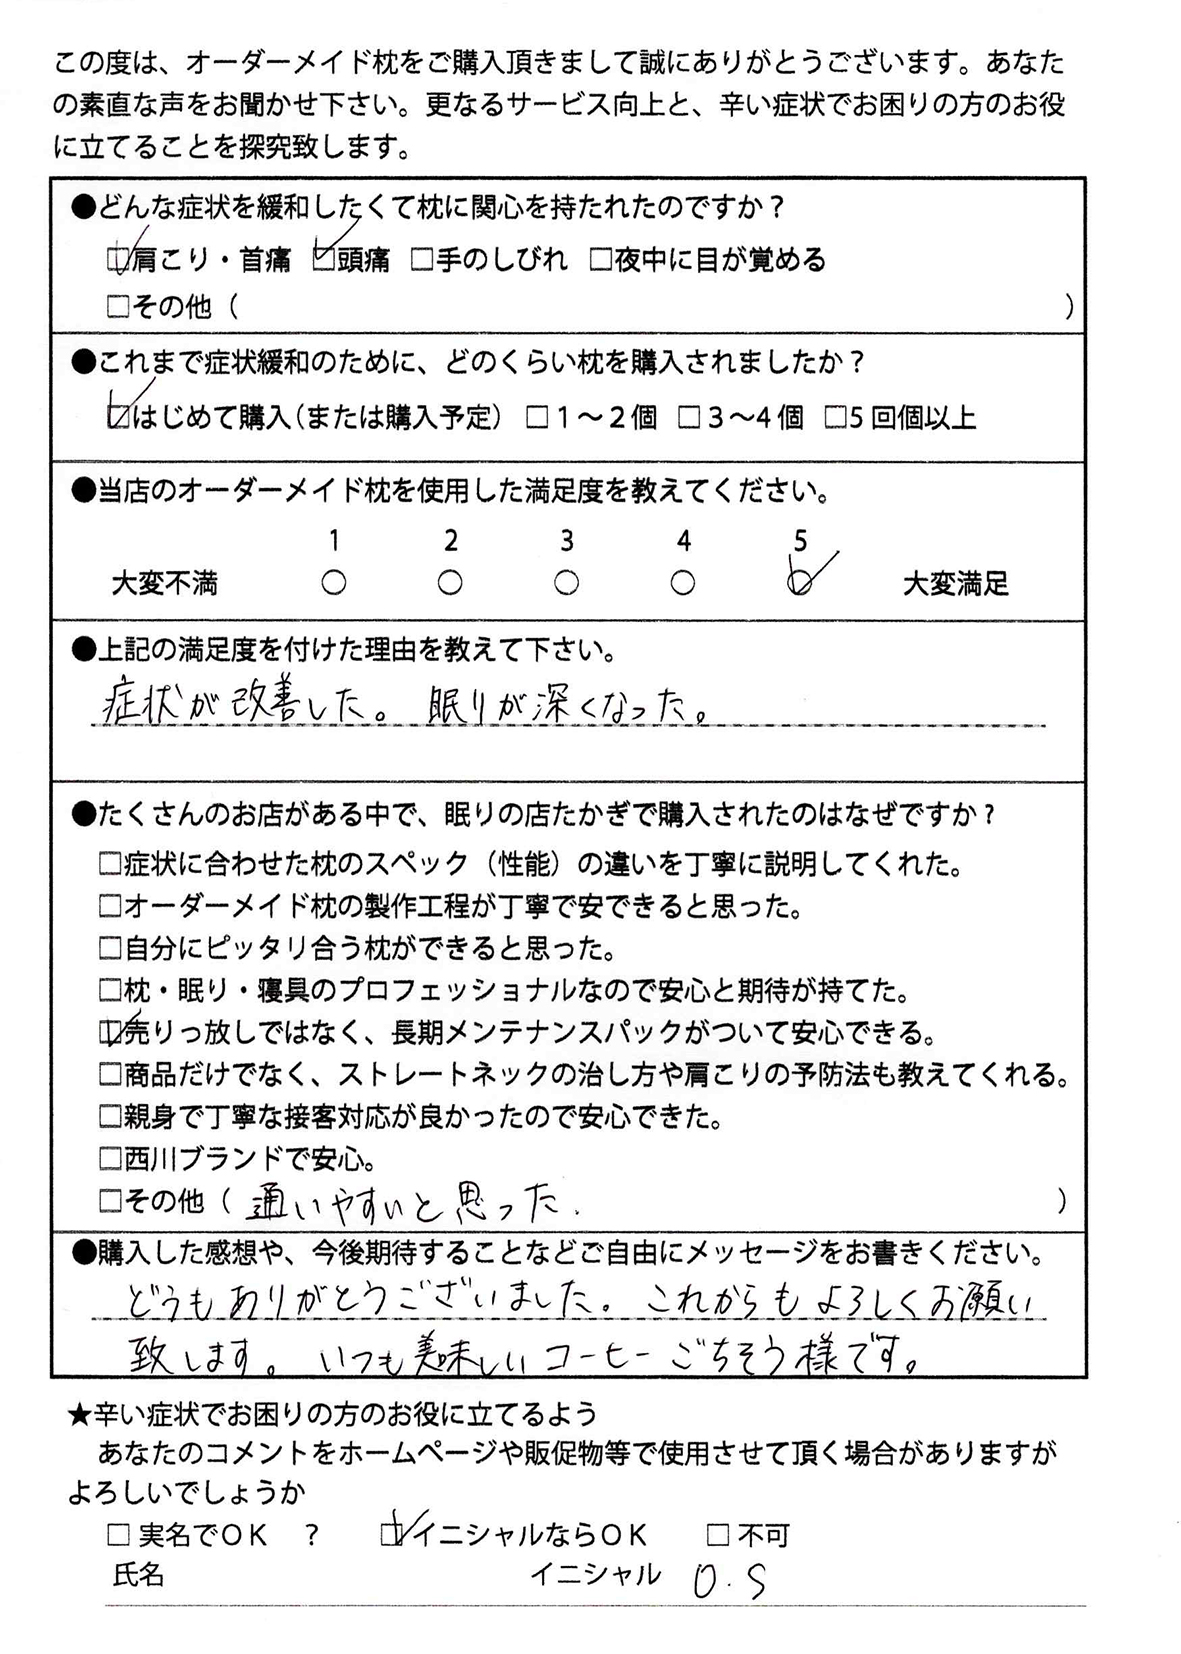 この度は、オーダーメイド枕をご購入頂きまして誠にありがとうございます。あなた
の素直な声をお聞かせ下さい。更なるサービス向上と、辛い症状でお困りの方のお役
に立てることを探究致します。
●どんな症状を緩和したくて枕に関心を持たれたのですか？
☑肩こり・首痛 ☑頭痛 □手のしびれ □夜中に目が覚める
□その他（ ）
●これまで症状緩和のために、どのくらい枕を購入されましたか？
☑はじめて購入（または購入予定） □1～2個 □3～4個 □5回個以上
●当店のオーダーメイド枕を使用した満足度を教えてください。
1 2 3 4 5
大変不満 ○ ○ ○ ○ ☑ 大変満足
●上記の満足度を付けた理由を教えて下さい。
症状が改善した。眠りが深くなった。
●たくさんのお店がある中で、眠りの店たかぎで購入されたのはなぜですか？
□症状に合わせた枕のスペック（性能）の違いを丁寧に説明してくれた。
□オーダーメイド枕の製作工程が丁寧で安できると思った。
□自分にピッタリ合う枕ができると思った。
□枕・眠り・寝具のプロフェッショナルなので安心と期待が持てた。
☑売りっ放しではなく、長期メンテナンスパックがついて安心できる。
□商品だけでなく、ストレートネックの治し方や肩こりの予防法も教えてくれる。
□親身で丁寧な接客対応が良かったので安心できた。
□西川ブランドで安心。
□その他（通いやすいと思った. ）
●購入した感想や、今後期待することなどご自由にメッセージをお書きください。
どうもありがとうございました。これからもよろしくお願い
致します。いつも美味しいコーヒーごちそう様です。
★辛い症状でお困りの方のお役に立てるよう
あなたのコメントをホームページや販促物等で使用させて頂く場合がありますが
よろしいでしょうか
□ 実名でOK ？ ☑イニシャルならOK □ 不可
氏名 イニシャル O.S